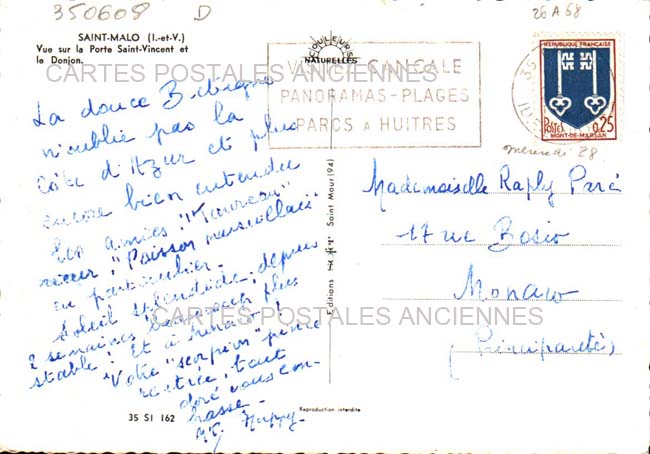 350608 D
26 A 68
SAINT-MALO (I.-et-V.)
Vue sur la Porte Saint-Vincent et
le Donjon.
COULEURS
NATURELLES
CANCALE
PANORAMAS-PLAGES
PARCS A HUITRES
REPUBLIQUE FRANÇAISE
POSTES 0,25
MONT-DE-MARSAN
CARTES POSTALES ANCIENNES
La douce Bretagne
n'oublie pas la
Côte d'Azur et plus
encore bien entendu
les amies "Taureau"
"Poisson marseillais"
en particulier.
Soleil splendide, depuis
2 semaines, beaucoup plus
stable! Et à
Votre "scorpion"
tout
doré vous em-
brasse.
mercredi 28
Mademoiselle Raply
17 rue Bosio
Monaco
(Principauté)
Editions Saint Maur (94)
CARTES POSTALES ANCIENNES
35 SI 162
Reproduction interdite